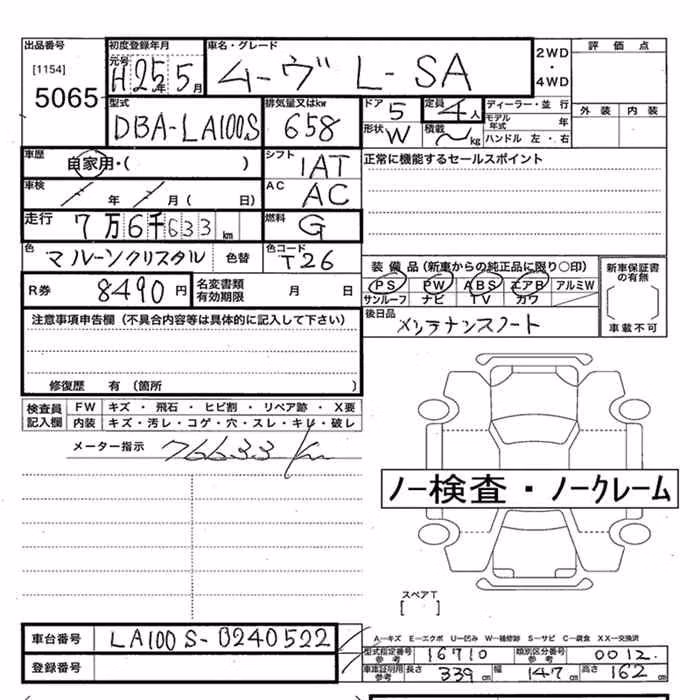 出品番号 初度登録年月 車名・グレード 2WD ・ 4WD 評価点
[1154] 元号 H25年5月 ムーヴ L-SA
5065
型式 排気量又はkw ドア 5 定員 4人 ディーラー・並行 外装 内装
DBA-LA100S 658 形状 W 積載 kg モデル年式 年
ハンドル 左・右
車歴 自家用・( ) シフト IAT 正常に機能するセールスポイント
車検 年 月( 日) AC AC
走行 7万6千633km 燃料 G
色 マルーンクリスタル 色替 色コード T26
装備品(新車からの純正品に限り○印) 新車保証書の有無
PS PW ABS エアB アルミW
サンルーフ ナビ TV カワ
車載不可
R券 8490円 名変書類有効期限 月 日
後日品 メンテナンスノート
注意事項申告欄(不具合内容等は具体的に記入して下さい)
修復歴 有 (箇所 )
検査員記入欄 FW キズ・飛石・ヒビ割・リペア跡・X要
内装 キズ・汚レ・コゲ・穴・スレ・キレ・破レ
メーター指示 76633 Km
ノー検査・ノークレーム
スペアT
[ ]
車台番号 LA100S-0240522
登録番号
A―キズ E―エクボ U―凹み W―補修跡 S―サビ C―腐食 XX―交換済
型式指定番号 参考 16710 類別区分番号 参考 0012
車庫証明用 参考 長さ 339cm 幅 147cm 高さ 162cm